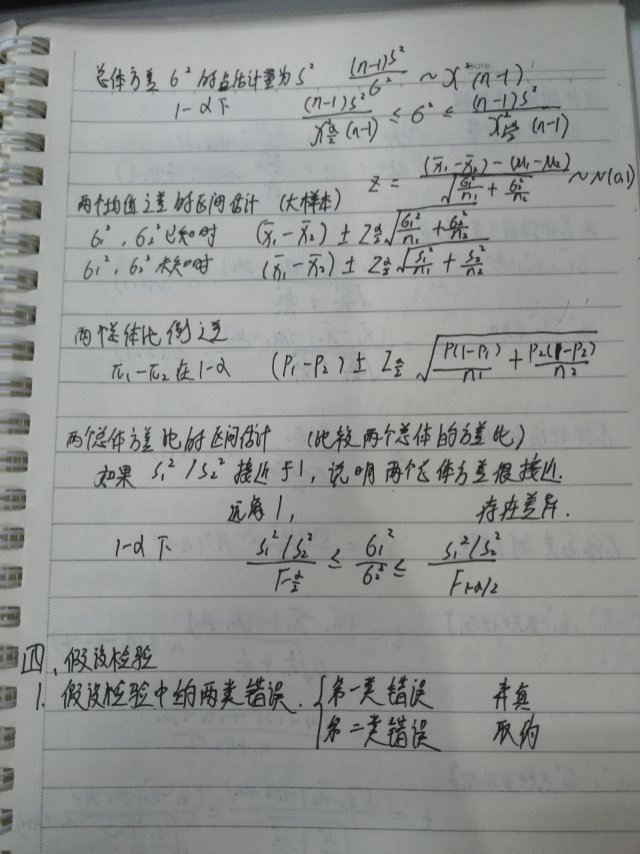 总体方差 σ² 的点估计量为 s²  (n-1)s²/σ² ~ χ²(n-1)
1-α下  (n-1)s²/χ²α/2(n-1) ≤ σ² ≤ (n-1)s²/χ²1-α/2(n-1)
z = (x̄₁-x̄₂)-(μ₁-μ₂)/√(σ₁²/n₁ + σ₂²/n₂) ~N(0,1)
两个均值之差的区间估计 (大样本)
σ₁², σ₂² 已知时  (x̄₁-x̄₂) ± Zα/2 √(σ₁²/n₁ + σ₂²/n₂)
σ₁², σ₂² 未知时  (x̄₁-x̄₂) ± Zα/2 √(s₁²/n₁ + s₂²/n₂)
两个总体比例之差
π₁-π₂在1-α  (P₁-P₂) ± Zα/2 √(P(1-P₁)/n₁ + P₂(1-P₂)/n₂)
两个总体方差比的区间估计 (比较两个总体的方差比)
如果 s₁²/s₂² 接近于1, 说明两个总体方差很接近.
远离1,  存在差异.
1-α下  s₁²/s₂²/Fα/2 ≤ σ₁²/σ₂² ≤ s₁²/s₂²/F1-α/2
四、假设检验
1. 假设检验中的两类错误. { 第一类错误  弃真
第二类错误  取伪